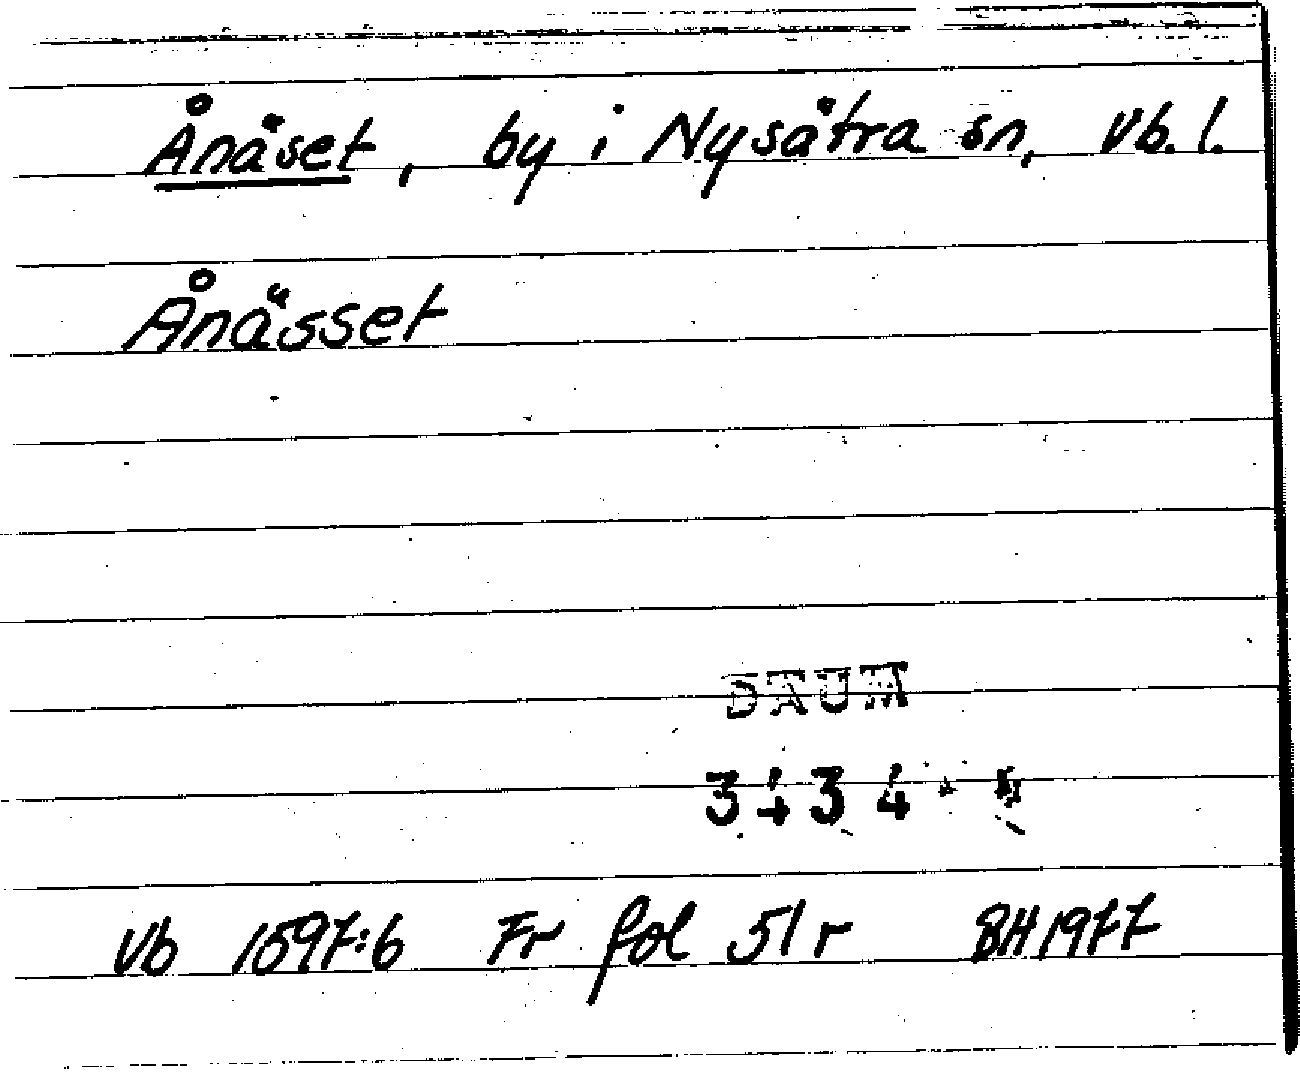 Ånäset, by i Nysätra sn, Vb. l.
Ånässet
DAUM
3434
Vb 1597:6 Fr fol 51 r BH 1977